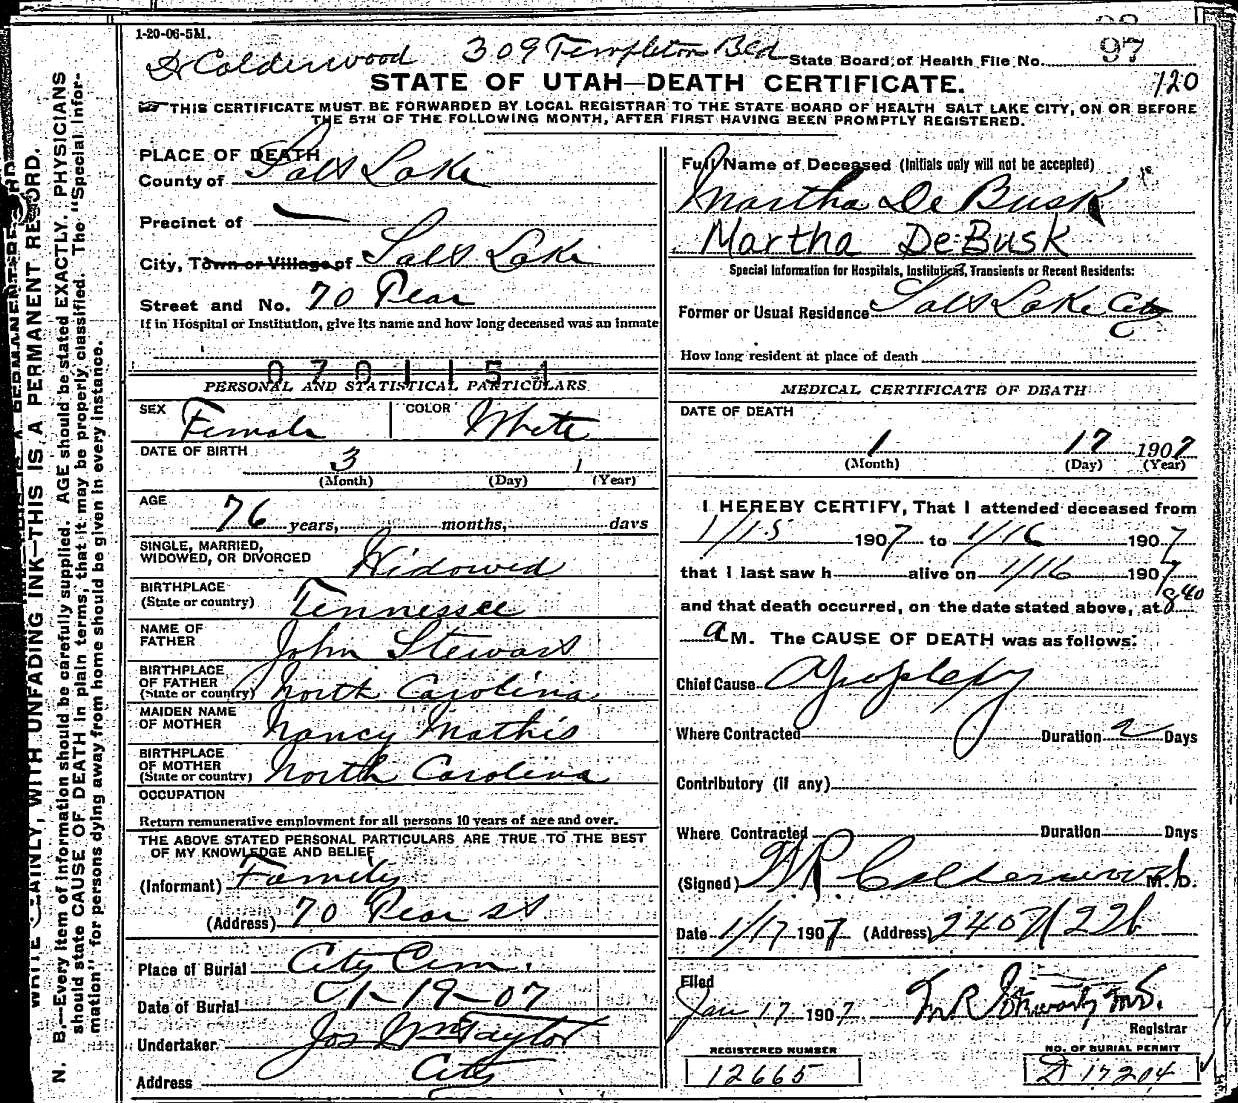 1-20-06-5M.
Dr Calderwood 309 Templeton Bld
State Board of Health File No. 97
120
STATE OF UTAH—DEATH CERTIFICATE.
THIS CERTIFICATE MUST BE FORWARDED BY LOCAL REGISTRAR TO THE STATE BOARD OF HEALTH SALT LAKE CITY, ON OR BEFORE
THE 5TH OF THE FOLLOWING MONTH, AFTER FIRST HAVING BEEN PROMPTLY REGISTERED.
PLACE OF DEATH
County of Salt Lake
Precinct of
City, Town or Village of Salt Lake
Street and No. 70 Pear
If in Hospital or Institution, give its name and how long deceased was an inmate
0701151
PERSONAL AND STATISTICAL PARTICULARS
SEX Female COLOR White
DATE OF BIRTH 3 1
(Month) (Day) (Year)
AGE 76 years, months, days
SINGLE, MARRIED,
WIDOWED, OR DIVORCED Widowed
BIRTHPLACE
(State or country) Tennessee
NAME OF
FATHER John Stewart
BIRTHPLACE
OF FATHER
(State or country) North Carolina
MAIDEN NAME
OF MOTHER Nancy Mathis
BIRTHPLACE
OF MOTHER
(State or country) North Carolina
OCCUPATION
Return remunerative employment for all persons 10 years of age and over.
THE ABOVE STATED PERSONAL PARTICULARS ARE TRUE TO THE BEST
OF MY KNOWLEDGE AND BELIEF
(Informant) Family
(Address) 70 Pear St
Place of Burial City Cem.
Date of Burial 1-19-07
Undertaker Jos Wm Taylor
Address City
Full Name of Deceased (Initials only will not be accepted)
Martha De Busk
Martha DeBusk
Special Information for Hospitals, Institutions, Transients or Recent Residents:
Former or Usual Residence Salt Lake City
How long resident at place of death
MEDICAL CERTIFICATE OF DEATH
DATE OF DEATH
1 17 1907
(Month) (Day) (Year)
I HEREBY CERTIFY, That I attended deceased from
1/15 1907 to 1/16 1907
that I last saw h alive on 1/16 1907
and that death occurred, on the date stated above, at 8 40
a M. The CAUSE OF DEATH was as follows:
Chief Cause Apoplexy
Where Contracted Duration 2 Days
Contributory (if any)
Where Contracted Duration Days
(Signed) W R Calderwood M. D.
Date 1/17 1907 (Address)
Filed
Jan 17 1907
Registrar
REGISTERED NUMBER
12665
NO. OF BURIAL PERMIT
D 17204
WRITE PLAINLY, WITH UNFADING INK—THIS IS A PERMANENT RECORD.
N. B.—Every item of information should be carefully supplied. AGE should be stated EXACTLY. PHYSICIANS
should state CAUSE OF DEATH in plain terms, that it may be properly classified. The "Special Infor-
mation" for persons dying away from home should be given in every instance.